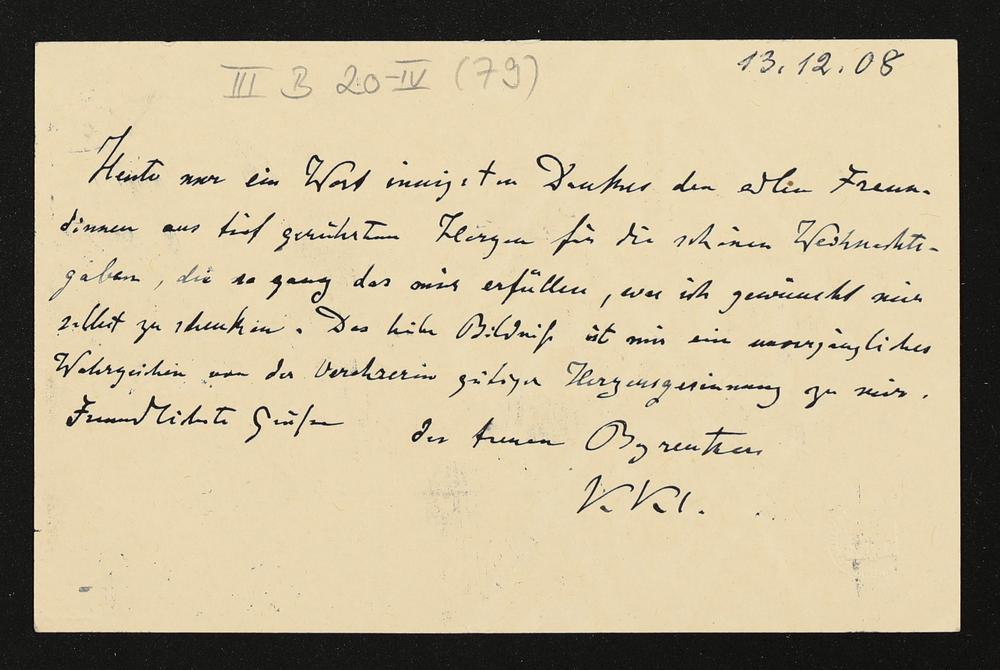 III B 20-IV (79)
13.12.08
Heute nur ein Wort innigsten Dankes den edlen Freun-
dinnen aus tief gerührtem Herzen für die schönen Weihnachts-
gaben, die so ganz das mir erfüllen, was ich gewünscht mir
selbst zu schenken. Das liebe Bildniß ist mir ein unvergängliches
Wahrzeichen von der Verehrerin gütiger Herzensgesinnung zu mir.
Freundlichste Grüße
des treuen
K Kl.